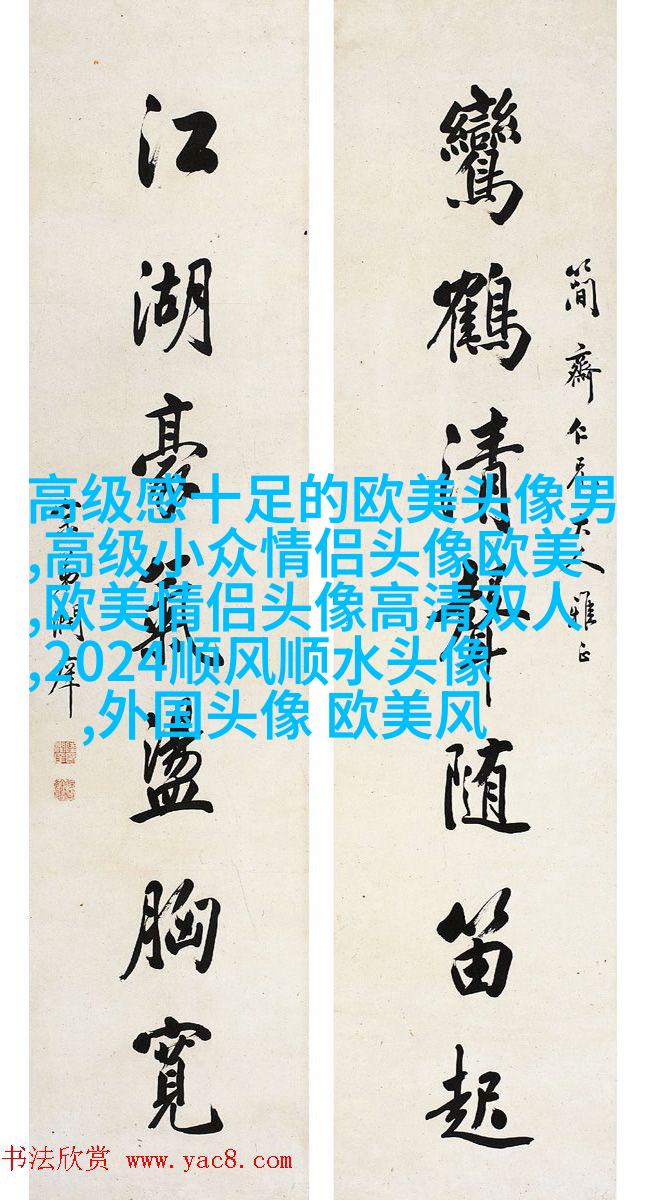 簡齋仁兄大人雅正
鸞鶴清聲随笛起
江湖豪氣盪胸寬
高级感十足的欧美头像男
,高级小众情侣头像欧美
,欧美情侣头像高清双人
,2024顺风顺水头像
,外国头像 欧美风
书法欣赏 www.yac8.com